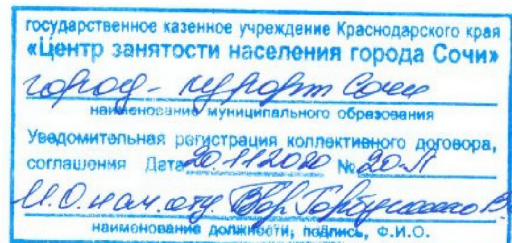 государственное казенное учреждение Краснодарского края
«Центр занятости населения города Сочи»
город-курорт Сочи
наименование муниципального образования
Уведомительная регистрация коллективного договора,
соглашения Дата 20.11.2020 №
И.О. нач. отд.
наименование должности, подпись, Ф.И.О.